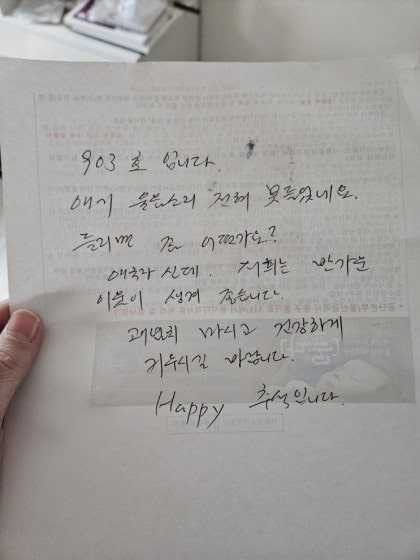 903호 입니다.
애기 울음소리 전혀 못들었네요.
들리면 좀 어떤가요?
애국자 신데. 저희는 반가운
이웃이 생겨 좋습니다.
괘념치 마시고 건강하게
키우시길 바랍니다.
Happy 추석입니다.